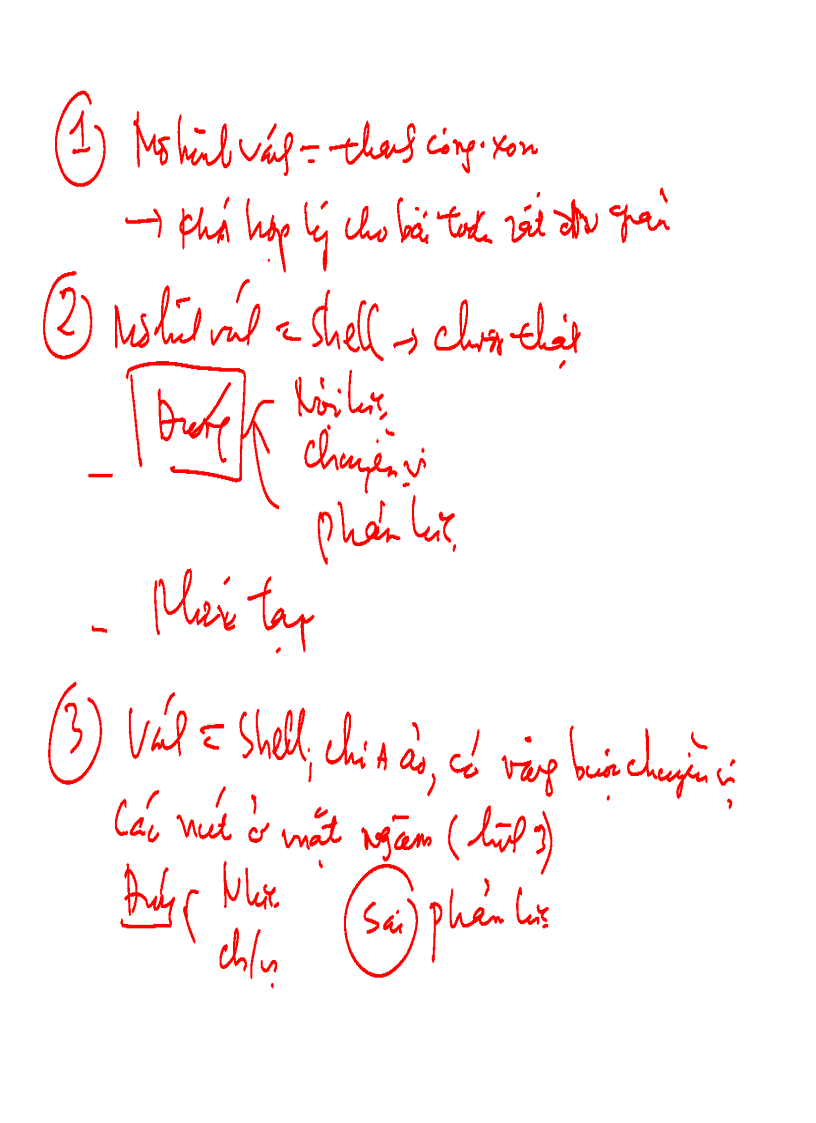 ① Mô hình vách = thanh công-xon
→ khá hợp lý cho bài toán rất đơn giản
② Mô hình vách = Shell → chia thật
- Đúng Nội lực
chuyển vị
phản lực
- Phức tạp
③ Vách = Shell, chia ảo, có ràng buộc chuyển vị
các nút ở mặt ngàm (hình 3)
Đúng Nlực Sai phản lực
ch/vị